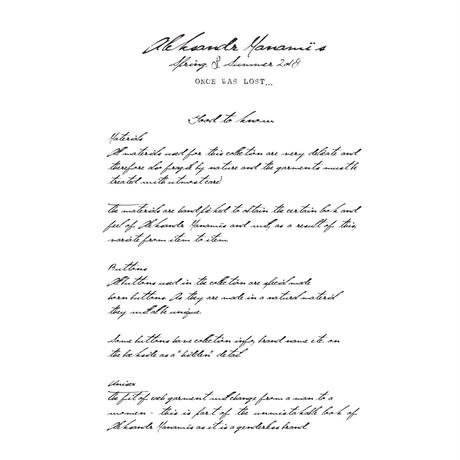 Aleksandr Manamïs
Spring & Summer 2018
ONCE WAS LOST...
Good to know
Materials
All materials used for this collection are very delicate and
therefore also fragile by nature and the garments must be
treated with utmost care!
The materials are handpicked to obtain the certain look and
feel of Aleksandr Manamis and will, as a result of this,
variate from item to item.
Buttons
All buttons used in the collection are special made
horn buttons. As they are made in a natural material
they will all be unique.
Some buttons have collection info, brand name etc. on
the back side as a "hidden" detail
Unisex
The fit of each garment will change from a man to a
women - this is part of the unmistakable look of
Aleksandr Manamis as it is a genderless brand